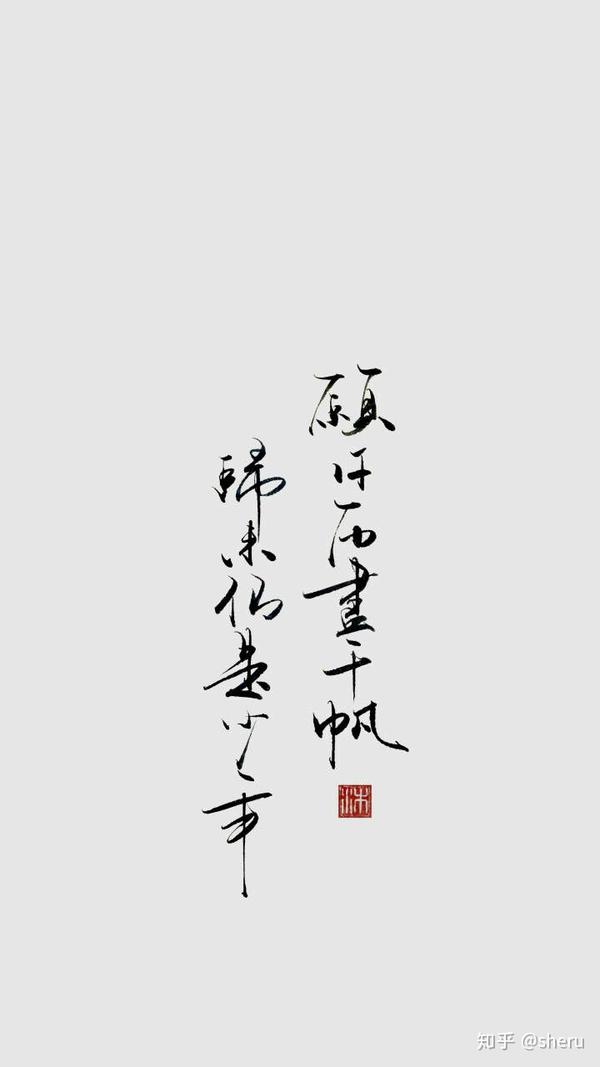 願你历盡千帆
歸来仍是少年
知乎 @sheru